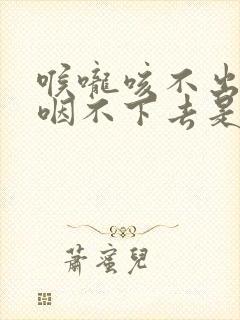 喉嚨咳不出
咽不下去是
蕭蜜兒